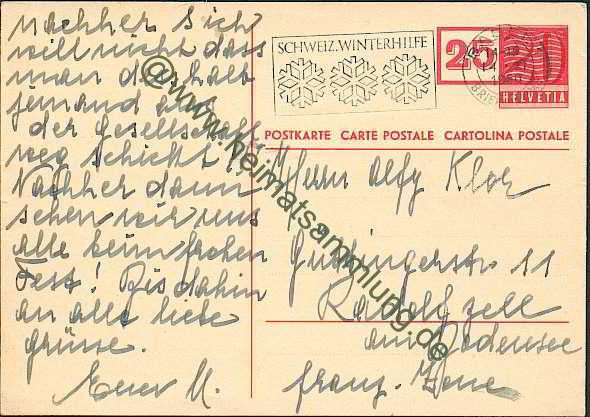 nachher sich
will nicht dass
man deshalb
jemand aus
der Gesellschaft
weg schickt!
Nachher dann
sehen wir uns
alle beim frohen
Fest! Bis dahin
an alle liebe
grüsse.
Euer M.
SCHWEIZ. WINTERHILFE
25
HELVETIA
POSTKARTE CARTE POSTALE CARTOLINA POSTALE
Herrn Alfy
11
Radolfzell
am Bodensee
franz. Zone
@www.heimatsammlung.de